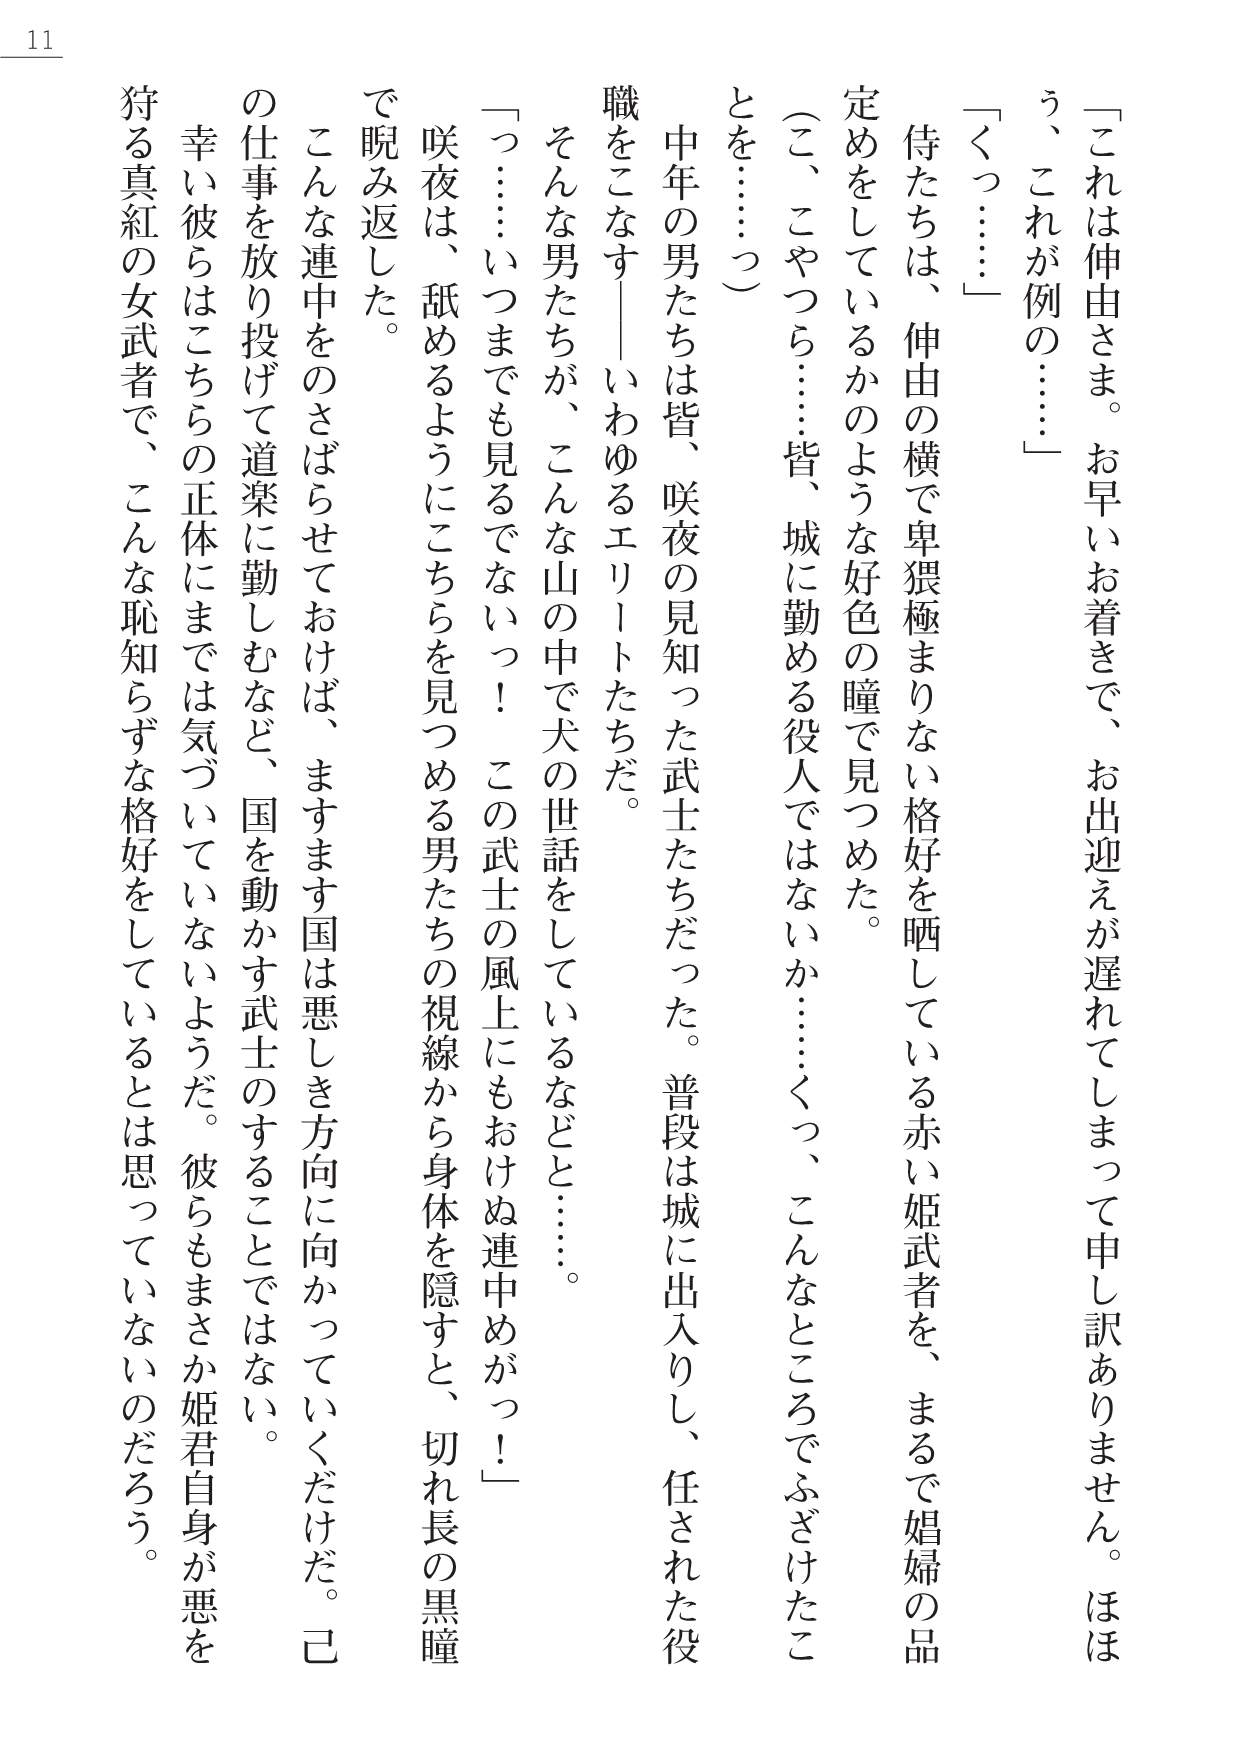 11
「これは伸由さま。お早いお着きで、お出迎えが遅れてしまって申し訳ありません。ほほ
ぅ、これが例の……」
「くっ……」
侍たちは、伸由の横で卑猥極まりない格好を晒している赤い姫武者を、まるで娼婦の品
定めをしているかのような好色の瞳で見つめた。
（こ、こやつら……皆、城に勤める役人ではないか……くっ、こんなところでふざけたこ
とを……っ）
中年の男たちは皆、咲夜の見知った武士たちだった。普段は城に出入りし、任された役
職をこなす――いわゆるエリートたちだ。
そんな男たちが、こんな山の中で犬の世話をしているなどと……。
「っ……いつまでも見るでないっ！　この武士の風上にもおけぬ連中めがっ！」
咲夜は、舐めるようにこちらを見つめる男たちの視線から身体を隠すと、切れ長の黒瞳
で睨み返した。
こんな連中をのさばらせておけば、ますます国は悪しき方向に向かっていくだけだ。己
の仕事を放り投げて道楽に勤しむなど、国を動かす武士のすることではない。
幸い彼らはこちらの正体にまでは気づいていないようだ。彼らもまさか姫君自身が悪を
狩る真紅の女武者で、こんな恥知らずな格好をしているとは思っていないのだろう。